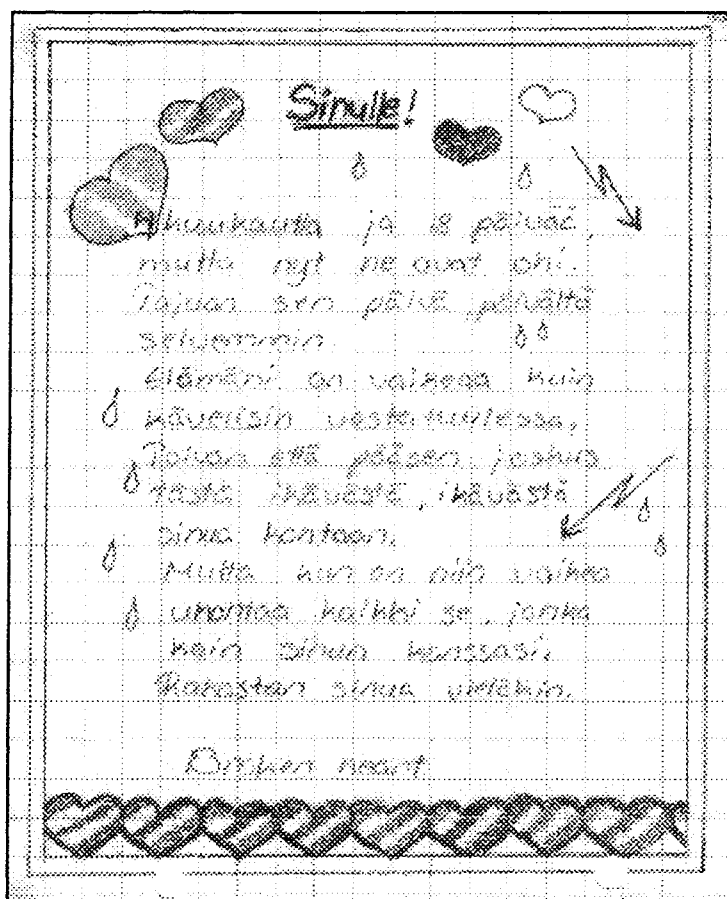 Sinulle!
4 kuukautta ja 18 päivää,
mutta nyt ne ovat ohi.
Tajuan sen päivä päivältä
selvemmin.
Elämäni on vaikeaa kuin
kävelisin vastatuulessa,
Toivon että pääsen joskus
tästä ikävästä, ikävästä
sinua kohtaan.
Mutta kun on niin vaikea
unohtaa kaikki se, jonka
koin sinun kanssasi.
Rakastan sinua vieläkin.
Broken heart